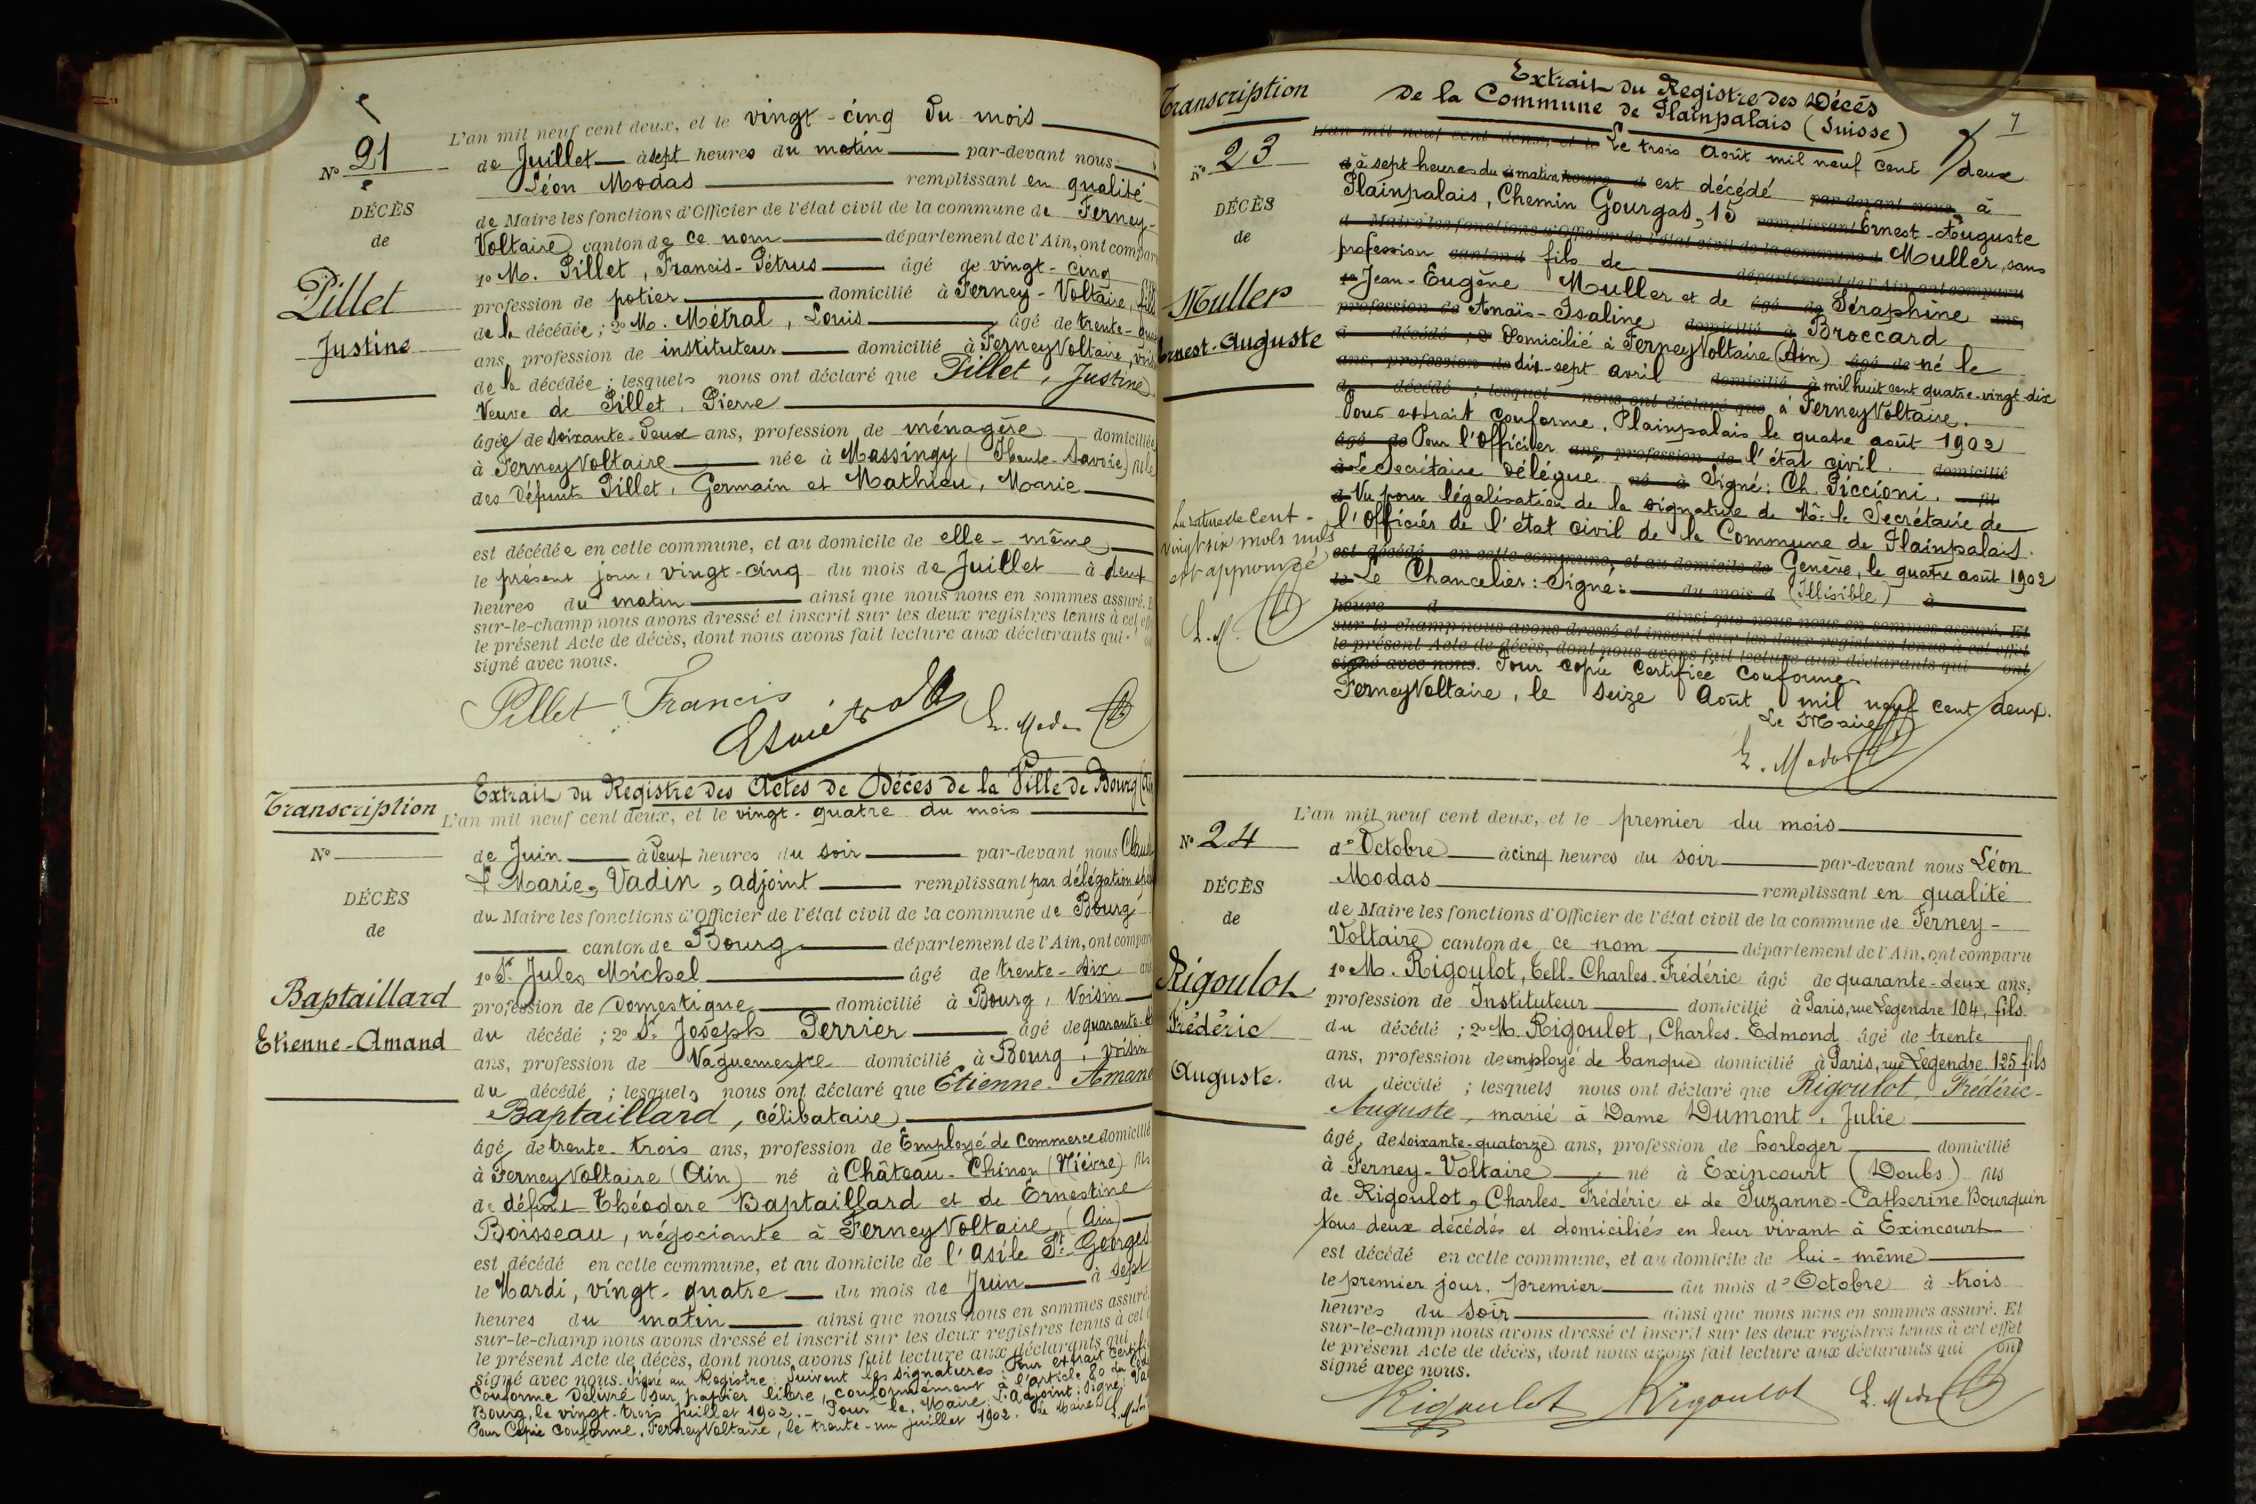 Nº 21
DÉCÈS
de
Pillet
Justine
L'an mil neuf cent deux, et le vingt-cinq du mois
de Juillet à sept heures du matin par-devant nous
Léon Modas remplissant en qualité
de Maire les fonctions d'Officier de l'état civil de la commune de Ferney-
Voltaire canton de ce nom département de l'Ain, ont compar
1º M. Pillet, Francis-Pétrus âgé de vingt-cinq
profession de potier domicilié à Ferney-Voltaire, fils
de la décédée; 2º M. Métral, Louis âgé de trente-
ans, profession de instituteur domicilié à Ferney Voltaire,
de la décédée; lesquels nous ont déclaré que Pillet, Justine
Veuve de Pillet, Pierre
âgée de soixante-deux ans, profession de ménagère domiciliée
à Ferney Voltaire née à Massingy (Haute-Savoie) fille
des défunts Pillet, Germain et Mathieu, Marie
est décédée en cette commune, et au domicile de elle-même
le présent jour, vingt-cinq du mois de Juillet à deux
heures du matin ainsi que nous nous en sommes assuré. E
sur-le-champ nous avons dressé et inscrit sur les deux registres tenus à cet eff
le présent Acte de décès, dont nous avons fait lecture aux déclarants qui
signé avec nous.
Pillet Francis
L. Modas
Transcription
Nº
DÉCÈS
de
Baptaillard
Etienne-Amand
Extrait du Registre des Actes de Décès de la Ville de Bourg (Ain
L'an mil neuf cent deux, et le vingt-quatre du mois
de Juin à deux heures du soir par-devant nous Claude
Marie, Vadin, adjoint remplissant par délégation
du Maire les fonctions d'Officier de l'état civil de la commune de Bourg
canton de Bourg département de l'Ain, ont compar
1º Sr. Jules Michel âgé de trente-six ans
profession de Domestique domicilié à Bourg, Voisin
du décédé; 2º Sr. Joseph Perrier âgé de quarante-
ans, profession de Vaguemestre domicilié à Bourg, voisin
du décédé; lesquels nous ont déclaré que Etienne-Amand
Baptaillard, célibataire
âgé de trente-trois ans, profession de Employé de Commerce domicilié
à Ferney Voltaire (Ain) né à Château-Chinon (Nièvre) fils
de défunt Théodore Baptaillard et de Ernestine
Boisseau, négociante à Ferney Voltaire (Ain)
est décédé en cette commune, et au domicile de l'Asile St. Georges
le Mardi, vingt-quatre du mois de Juin à sept
heures du matin ainsi que nous nous en sommes assuré
sur-le-champ nous avons dressé et inscrit sur les deux registres tenus à cet
le présent Acte de décès, dont nous avons fait lecture aux déclarants qui
signé avec nous. Signé au Registre: Suivent les signatures: Pour extrait certifié
Conforme Délivré sur papier libre, conformément à l'article 80 du Code
Bourg, le vingt-trois juillet 1902.- Pour le Maire: L'adjoint: Signé: Va
Pour Copie conforme, Ferney Voltaire, le trente-un juillet 1902. Le Maire L. Modas
7
Transcription
Nº 23
DÉCÈS
de
Muller
Ernest-Auguste
La rature de cent-
vingt six mots nuls
est approuvée
L. M.
Extrait du Registre des Décès
de la Commune de Plainpalais (Suisse)
L'an mil neuf cent deux, et le Le trois Août mil neuf cent deux
à sept heures du matin heure d est décédé par-devant nous à
Plainpalais, Chemin Gourgas, 15 remplissant Ernest-Auguste
d Maire les fonctions d'Officier de l'état civil de la commune d Muller, sans
profession canton d fils de département de l'Ain, ont comparu
1º Jean-Eugène Muller et de âgé de Séraphine ans,
profession de Anaïs-Isaline domicilié à Broccard
d décédé; 2º Domicilié à Ferney Voltaire (Ain) âgé de né le
ans, profession de dix-sept avril domicilié à mil huit cent quatre-vingt-dix
d décédé; lesquel nous ont déclaré que à Ferney Voltaire.
Pour extrait conforme, Plainpalais le quatre août 1902
âgé de Pour l'Officier ans, profession de l'état civil. domicilié
à Le Secrétaire Délégué né à Signé: Ch. Piccioni. fil
d Vu pour légalisation de la signature de Mr. le Secrétaire de
l'Officier de l'état civil de la Commune de Plainpalais.
est décédé en cette commune, et au domicile de Genève, le quatre août 1902
le Le Chancelier: Signé: du mois d (Illisible) à
heure d ainsi que nous nous en sommes assuré. Et
sur-le-champ nous avons dressé et inscrit sur les deux registres tenus à cet effet
le présent Acte de décès, dont nous avons fait lecture aux déclarants qui ont
signé avec nous. Pour copie certifiée conforme
Ferney Voltaire, le seize Août mil neuf cent deux.
Le Maire
L. Modas
Nº 24
DÉCÈS
de
Rigoulot
Frédéric
Auguste.
L'an mil neuf cent deux, et le premier du mois
d'Octobre à cinq heures du soir par-devant nous Léon
Modas remplissant en qualité
de Maire les fonctions d'Officier de l'état civil de la commune de Ferney-
Voltaire canton de ce nom département de l'Ain, ont comparu
1º M. Rigoulot, Tell-Charles-Frédéric âgé de quarante-deux ans,
profession de Instituteur domicilié à Paris, rue Legendre 104, fils
du décédé; 2º M. Rigoulot, Charles-Edmond âgé de trente
ans, profession de employé de banque domicilié à Paris, rue Legendre 125 fils
du décédé; lesquels nous ont déclaré que Rigoulot, Frédéric-
Auguste, marié à Dame Dumont, Julie
âgé de soixante-quatorze ans, profession de horloger domicilié
à Ferney-Voltaire né à Exincourt (Doubs) fils
de Rigoulot, Charles-Frédéric et de Suzanne-Catherine Bourquin
tous deux décédés et domiciliés en leur vivant à Exincourt
est décédé en cette commune, et au domicile de lui-même
le premier jour, premier du mois d'Octobre à trois
heures du soir ainsi que nous nous en sommes assuré. Et
sur-le-champ nous avons dressé et inscrit sur les deux registres tenus à cet effet
le présent Acte de décès, dont nous avons fait lecture aux déclarants qui ont
signé avec nous.
Rigoulot Rigoulot L. Modas